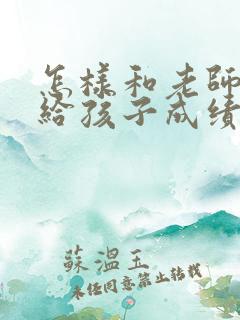 怎樣和老師
給孩子成績
蘇溫玉
未经同意禁止转载